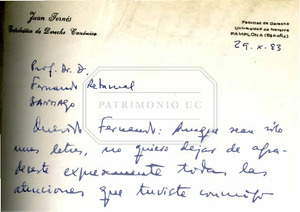 Juan Fornés
Catedrático de Derecho Canónico
Facultad de Derecho
Universidad de Navarra
PAMPLONA (ESPAÑA)
29.X.83
Prof. Dr. D.
Fernando Retamal
SANTIAGO
PATRIMONIO UC
Querido Fernando: Aunque sean sólo
unas letras, no quiero dejar de agra-
decerte expresamente todas las
atenciones que tuviste conmigo